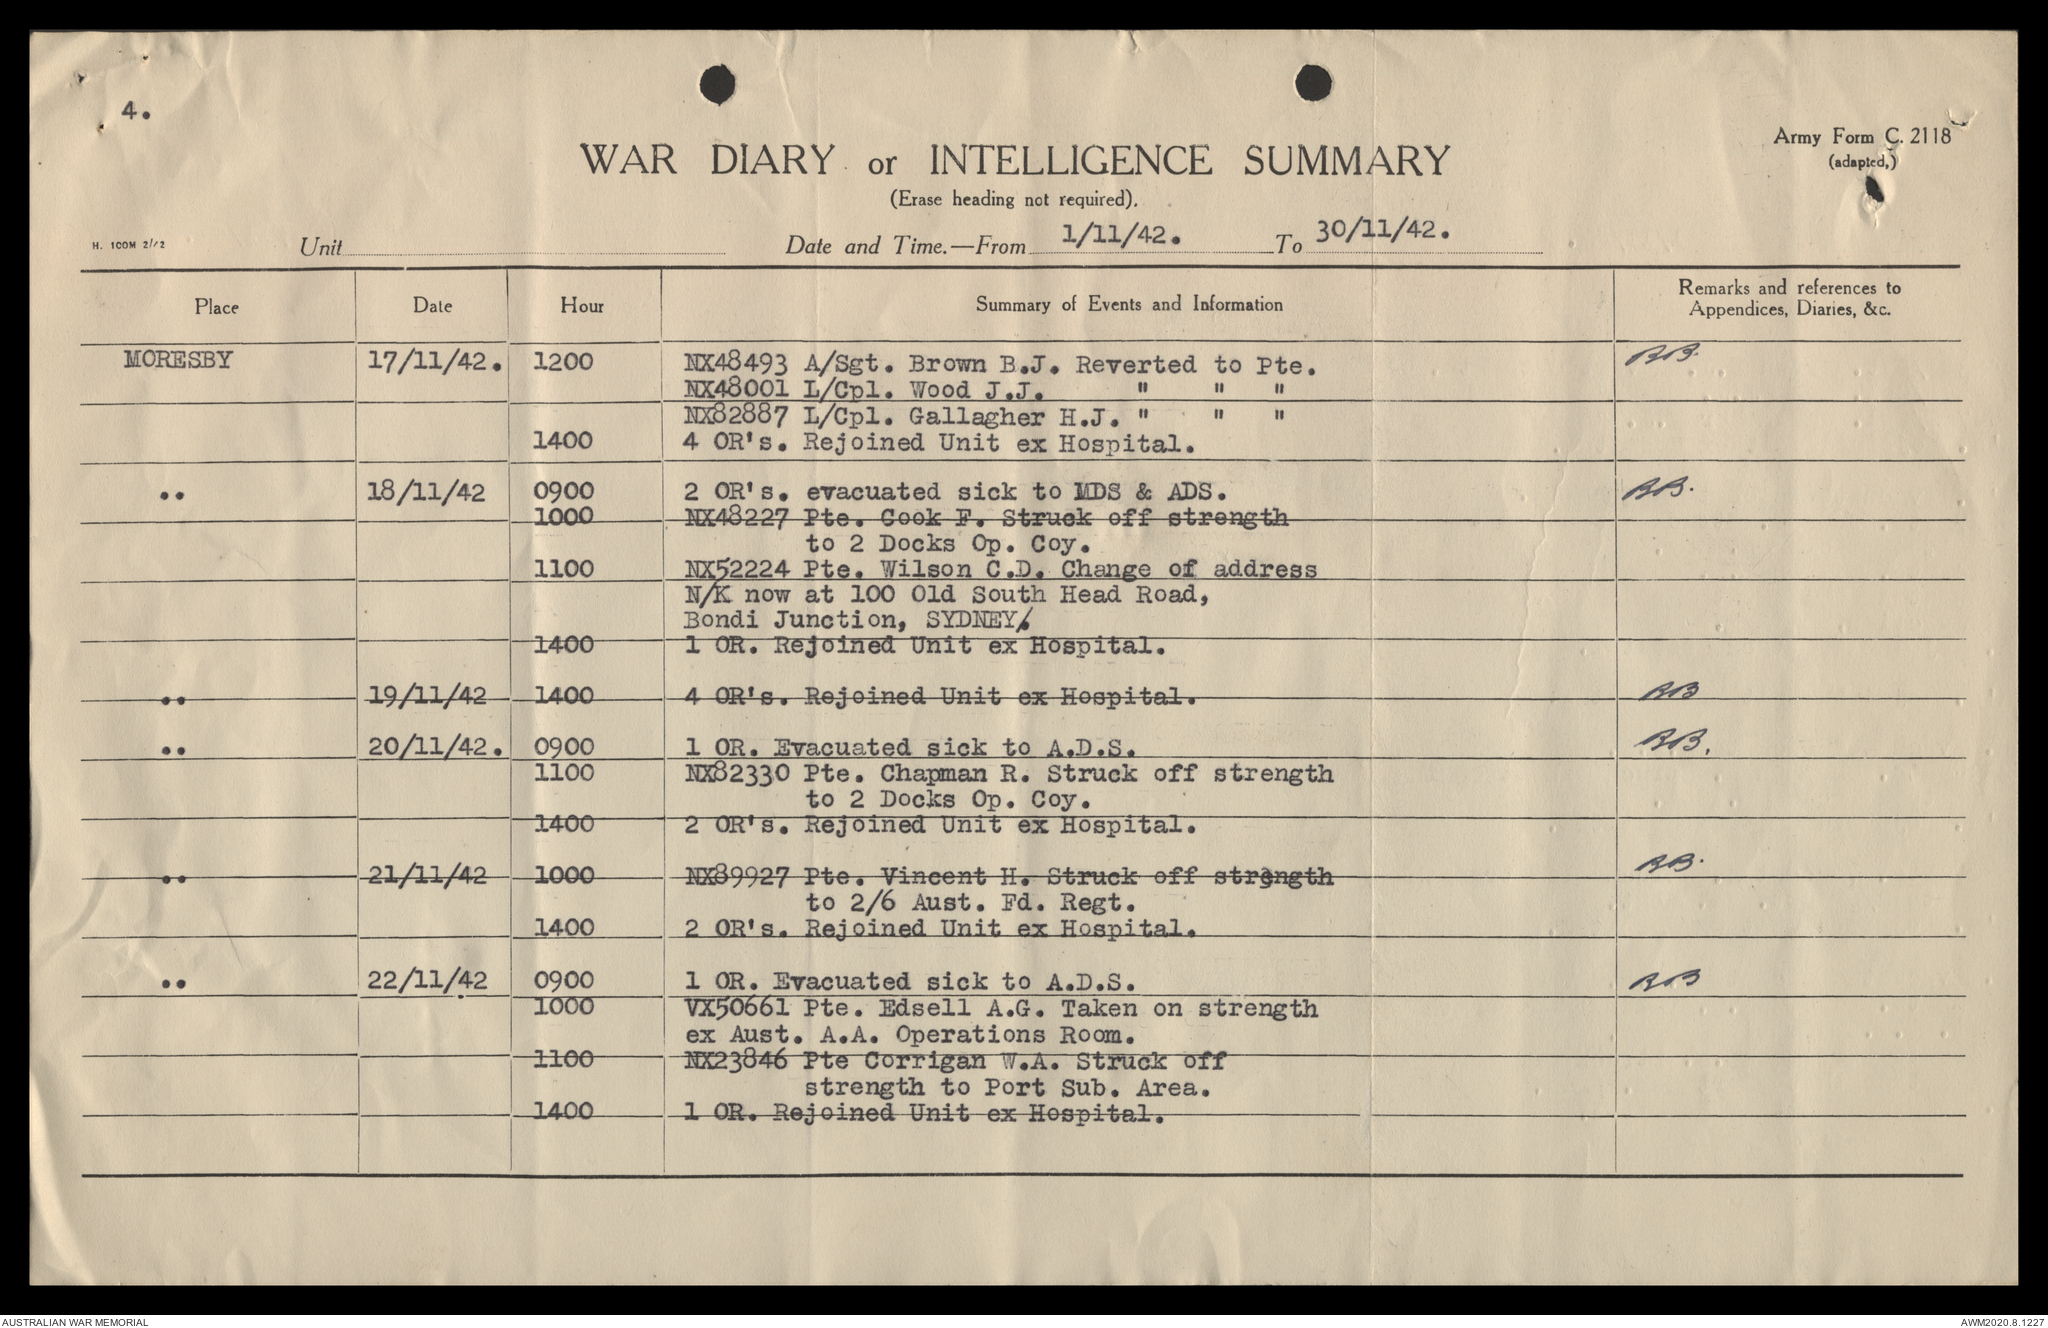 4.
Army Form C. 2118
(adapted,)
WAR DIARY or INTELLIGENCE SUMMARY
(Erase heading not required).
H. 100M 2/42 Unit Date and Time.—From 1/11/42. To 30/11/42.
Place Date Hour Summary of Events and Information Remarks and references to Appendices, Diaries, &c.
MORESBY 17/11/42. 1200 NX48493 A/Sgt. Brown B.J. Reverted to Pte. BB.
NX48001 L/Cpl. Wood J.J. " " "
NX82887 L/Cpl. Gallagher H.J. " " "
1400 4 OR's. Rejoined Unit ex Hospital.
.. 18/11/42 0900 2 OR's. evacuated sick to MDS & ADS. BB.
1000 NX48227 Pte. Cook F. Struck off strength
to 2 Docks Op. Coy.
1100 NX52224 Pte. Wilson C.D. Change of address
N/K now at 100 Old South Head Road,
Bondi Junction, SYDNEY.
1400 1 OR. Rejoined Unit ex Hospital.
.. 19/11/42 1400 4 OR's. Rejoined Unit ex Hospital. BB
.. 20/11/42. 0900 1 OR. Evacuated sick to A.D.S. BB.
1100 NX82330 Pte. Chapman R. Struck off strength
to 2 Docks Op. Coy.
1400 2 OR's. Rejoined Unit ex Hospital.
.. 21/11/42 1000 NX89927 Pte. Vincent H. Struck off strength BB.
to 2/6 Aust. Fd. Regt.
1400 2 OR's. Rejoined Unit ex Hospital.
.. 22/11/42 0900 1 OR. Evacuated sick to A.D.S. BB
1000 VX50661 Pte. Edsell A.G. Taken on strength
ex Aust. A.A. Operations Room.
1100 NX23846 Pte Corrigan W.A. Struck off
strength to Port Sub. Area.
1400 1 OR. Rejoined Unit ex Hospital.
AUSTRALIAN WAR MEMORIAL AWM2020.8.1227